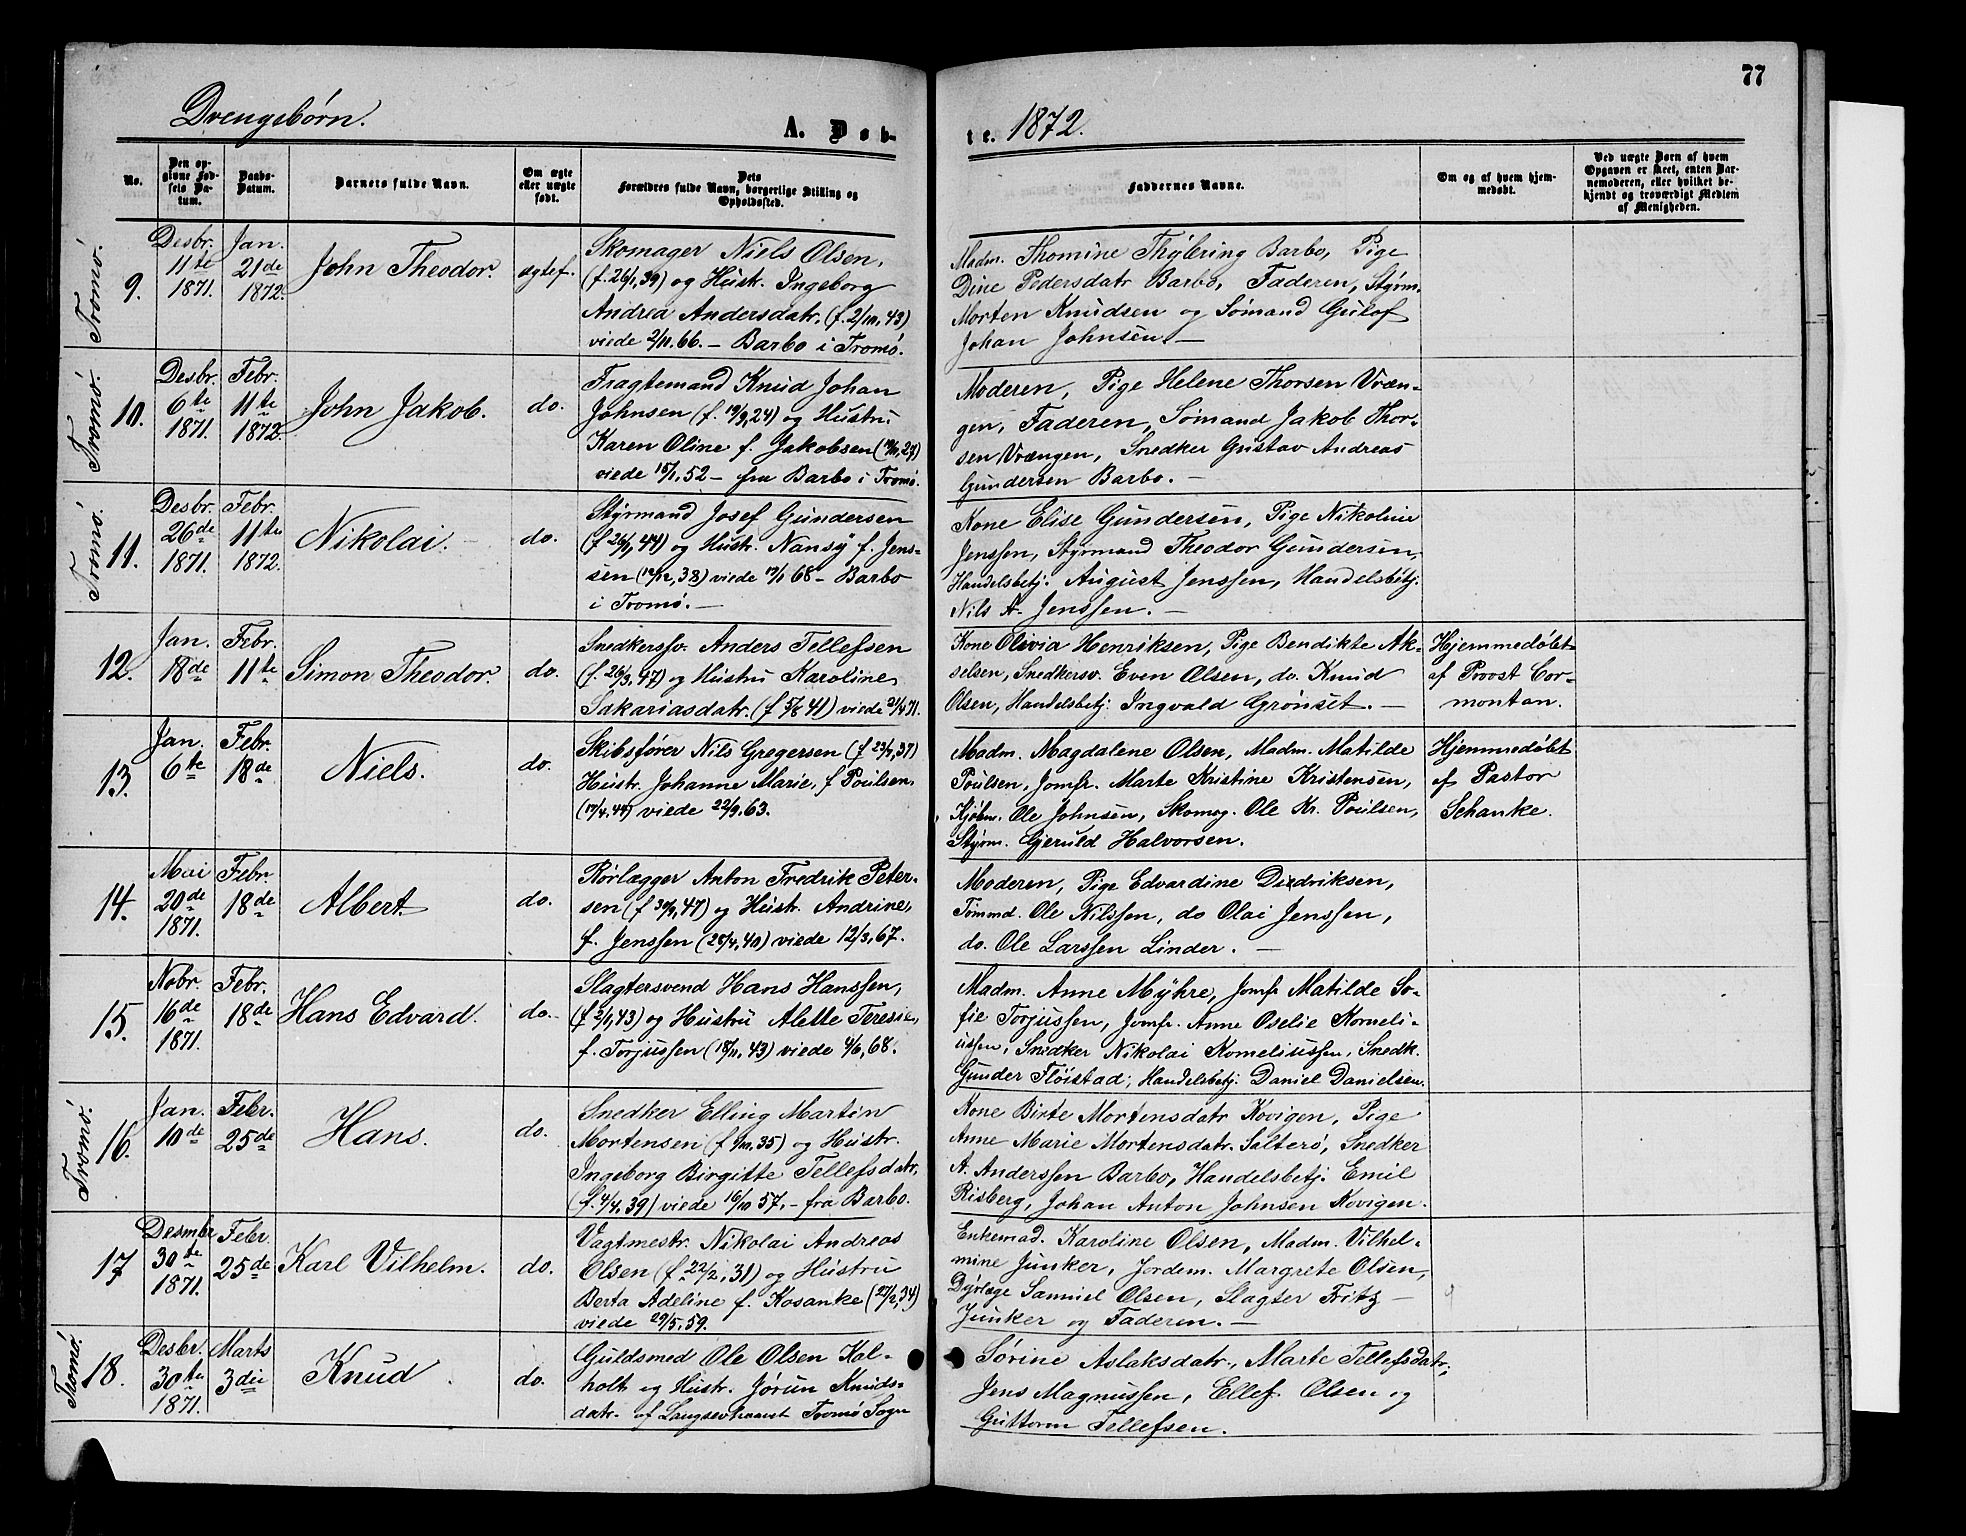 77
Drengebørn.
A. Døb-
te. 1872.
No.
Den op-
givne Fød-
sels Da-
tum.
Daabs-
Datum.
Barnets fulde Navn.
Om ægte
eller uægte
født.
Dets
Forældres fulde Navn, borgerlige Stilling og
Opholdssted.
Faddernes Navne.
Om og af hvem hjem-
medøbt.
Ved uægte Børn af hvem
Opgaven er skeet, enten Bar-
nemoderen, eller hvilket be-
kjendt og troværdigt Medlem
af Menigheden.
Tromø.
9.
Desbr.
11te
1871.
Jan.
21de
1872.
John Theodor.
ægtef.
Skomager Niels Olsen,
(f. 26/1, 39) og Hustr. Ingeborg
Andrea Andersdatr. (f. 2/10, 43)
viede 2/11. 66. – Barbo i Tromø.
Madm. Thomine Thybring Barbo, Pige
Dine Pedersdatr Barbo, Faderen, Styrm.
Morten Knudsen og Sømand Gulof
Johan Johnsen. –
Tromø.
10.
Desbr.
6te
1871.
Febr.
11te
1872.
John Jakob.
do.
Fragtemand Knud Johan
Johnsen (f. 19/9, 24) og Hustru
Karen Oline f. Jakobsen
viede 15/1, 52 – fra Barbo i Tromø.
Moderen, Pige Helene Thorsen Vræn-
gen, Faderen, Sømand Jakob Thor-
sen Vrængen, Snedker Gustav Andreas
Gundersen Barbo. –
Tromø.
11.
Desbr.
26de
1871.
Febr.
11te
1872.
Nikolai.
do.
Styrmand Josef Gundersen
(f. 26/1, 44) og Hustr. Nansy f. Jens-
sen (12/12, 38) viede 68 – Barbo
i Tromø. –
Kone Elise Gundersen, Pige Nikoline
Jenssen, Styrmand Theodor Gundersen,
Handelsbetj. August Jenssen, Handelsbetj.
Nils A. Jenssen. –
12.
Jan.
18de
Febr.
11te
Simon Theodor.
do.
Snedkersv. Anders Tellefsen
(f. 26/3, 47) og Hustru Karoline
Sakariasdatr. (f 5/8 41) viede 21/4 71.
Kone Olivia Henriksen, Pige Bendikte Ak-
selsen, Snedkersv. Even Olsen, do. Knud
Olsen, Handelsbetj. Ingvald Grønset. –
Hjemmedøbt
af Provst Cor-
montan.
13.
Jan.
6te
Febr.
18de
Niels.
do.
Skibsfører Nils Gregersen (f 23/7, 37)
Hustr. Johanne Marie, f Poulsen
(17/4, 44) viede 22/9. 63.
Madm. Magdalene Olsen, Madm. Matilde
Poulsen, Jomfr. Marte Kristine Kristensen,
Kjøbm. Ole Johnsen, Skomag. Ole Kr. Poulsen,
Styrm. Gjeruld Halvorsen.
Hjemmedøbt
af Pastor
Schanke.
14.
Mai
20de
1871.
Febr.
18de
Albert.
do.
Rørlægger Anton Fredrik Peter-
sen (f 30/9, 47) og Hustr. Andrine,
f. Jenssen (28/4, 40) viede 12/3, 67.
Moderen, Pige Edvardine Didriksen,
Tømmd. Ole Nilssen, do Olai Jenssen,
do. Ole Larssen Linder. –
15.
Nobr.
16de
1871.
Febr.
18de
Hans Edvard.
do.
Slagtersvend Hans Hanssen,
(f 2/1, 43) og Hustru Alette Teresie,
f. Torjussen (18/11, 43) viede 4/6, 68.
Madm. Anne Myhre, Jomfr Matilde So-
fie Torjussen, Jomfr. Anne Oselie Korneli-
ussen, Snedker Nikolai Korneliussen, Snedk.
Gunder Fløistad, Handelsbetj. Daniel Danielsen.
Tromø.
16.
Jan.
10de
Febr.
25de
Hans.
do.
Snedker Elling Martin
Mortensen (f /10. 35) og Hustr.
Ingeborg Birgitte Tellefsdatr.
(f. 4/4, 39) viede 16/10 57. – fra Barbo.
Kone Birte Mortensdatr Kovigen, Pige
Anne Marie Mortensdatr. Salterø, Snedker
A. Anderssen Barbo, Handelsbetj. Emil
Risberg, Johan Anton Johnsen Kovigen.
17
Desmbr
30te
1871.
Febr.
25de
Karl Vilhelm.
do.
Vagtmestr. Nikolai Andreas
Olsen (f. 22/2, 31) og Hustru
Berta Adeline f. Kosanke (27/2, 34)
viede 29/5. 59.
Enkemad. Karoline Olsen, Madm. Vilhel-
mine Junker, Jordem. Margrete Olsen,
Dyrlæge Samuel Olsen, Slagter Fritz –
Junker og Faderen. –
Tromø.
18.
Desbr.
30te
1871.
Marts
3die
Knud
do.
Guldsmed Ole Olsen Kal-
holt og Hustr. Jørun Knuds-
datr. af Tromø Sogn
Sørine Aslaksdatr., Marte Tellefsdatr,
Jens Magnussen, Ellef Olsen og
Guttorm Tellefsen.